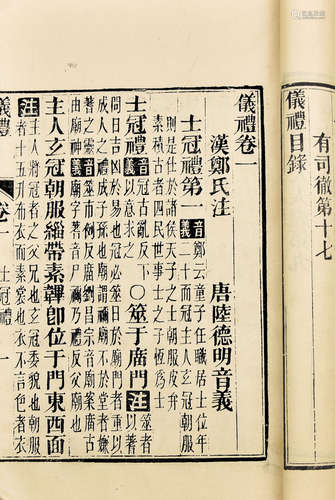 有司徹第十七
儀禮目錄
儀禮卷一
漢鄭氏注 唐陸德明音義
士冠禮第一 音義 鄭云童子任職居士位年
二十而冠主人玄冠朝服
則是仕於諸侯天子之士朝服皮弁
素積古者四民世事士之子恆爲士
士冠禮 音義 冠古亂反下〇筮于廟門 注 筮者以蓍
問日吉凶於易也冠必筮日於廟門者重以
成人之禮成子孫也廟謂禰廟不於堂者嫌
蓍之靈
由廟神 音義 筮市例反廟劉昌宗音廟案廟古
廟字蓍音尸禰乃禮反父廟也
主人玄冠朝服緇帶素韠卽位于門東西面
注 主人將冠者之父兄也玄冠委貌也朝服
者十五升布衣而素裳也衣不言色者衣
儀禮 卷一 士冠禮 一